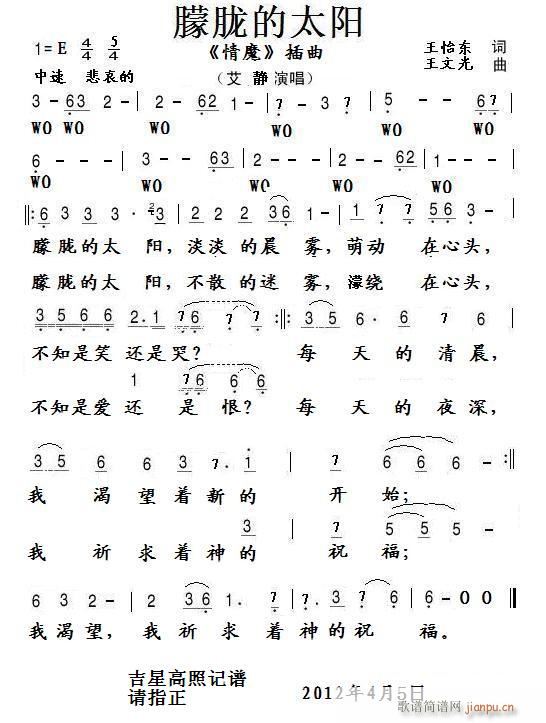 朦胧的太阳
1=E 4/4 5/4 《情魔》插曲 王怡东 词
中速 悲哀的 （艾 静 演唱） 王文光 曲
3 - 63 | 2 - - - | 2 - 62 | 1 - - - | 7· - 7· | 5 - - - | 6 - 67 |
WO WO WO WO WO WO WO
6 - - - | 3 - - 63 | 2 - - - | 2 - - 62 | 1 - - - |
WO WO WO WO WO
‖: 6 3 3 3· 2 3 | 2 2 2 36 | 1 - | 1· 7 7 | 56 3 - |
朦胧的太 阳，淡淡的晨 雾，萌动 在心头，
朦胧的太 阳，不散的迷 雾，濛绕 在心头，
3 5 6 6 2· 1 76 7 7 :‖: 3 5 6· 6 7 6
不知是笑 还是哭？ 每 天 的 清 晨，
1 76 6 6
不知是爱 还 是 恨？ 每 天 的 夜 深，
35 6 6 3 7· 1 | 6 6 6 - :‖
我 渴 望 着 新 的 开 始；
3 5 5 5
我 祈 求 着 神 的 祝 福；
6 3 2 - | 2 36 1· 7 | 7 3 7 6 | 6 - 0 0 ‖
我渴 望，我 祈 求 着 神 的 祝 福。
吉星高照记谱
请指正 2012年4月5日
歌谱简谱网
jianpu.cn